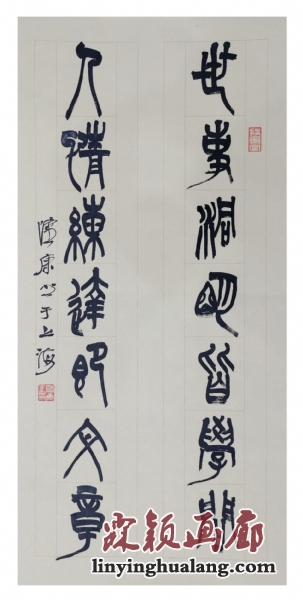 世事洞明皆學問
人情練達即文章
康竺于上海
霖颖画廊
www.linyinghualang.com